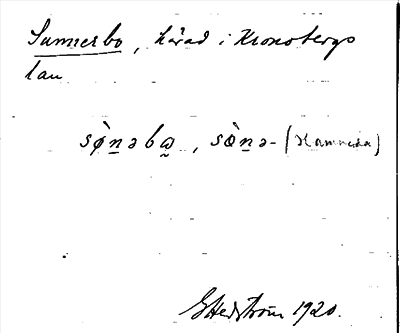 Sunnerbo, härad i Kronobergs
län
sø̀n̲əbω̰, sὼn̲ə- (Hamneda)
G Hedström 1920.